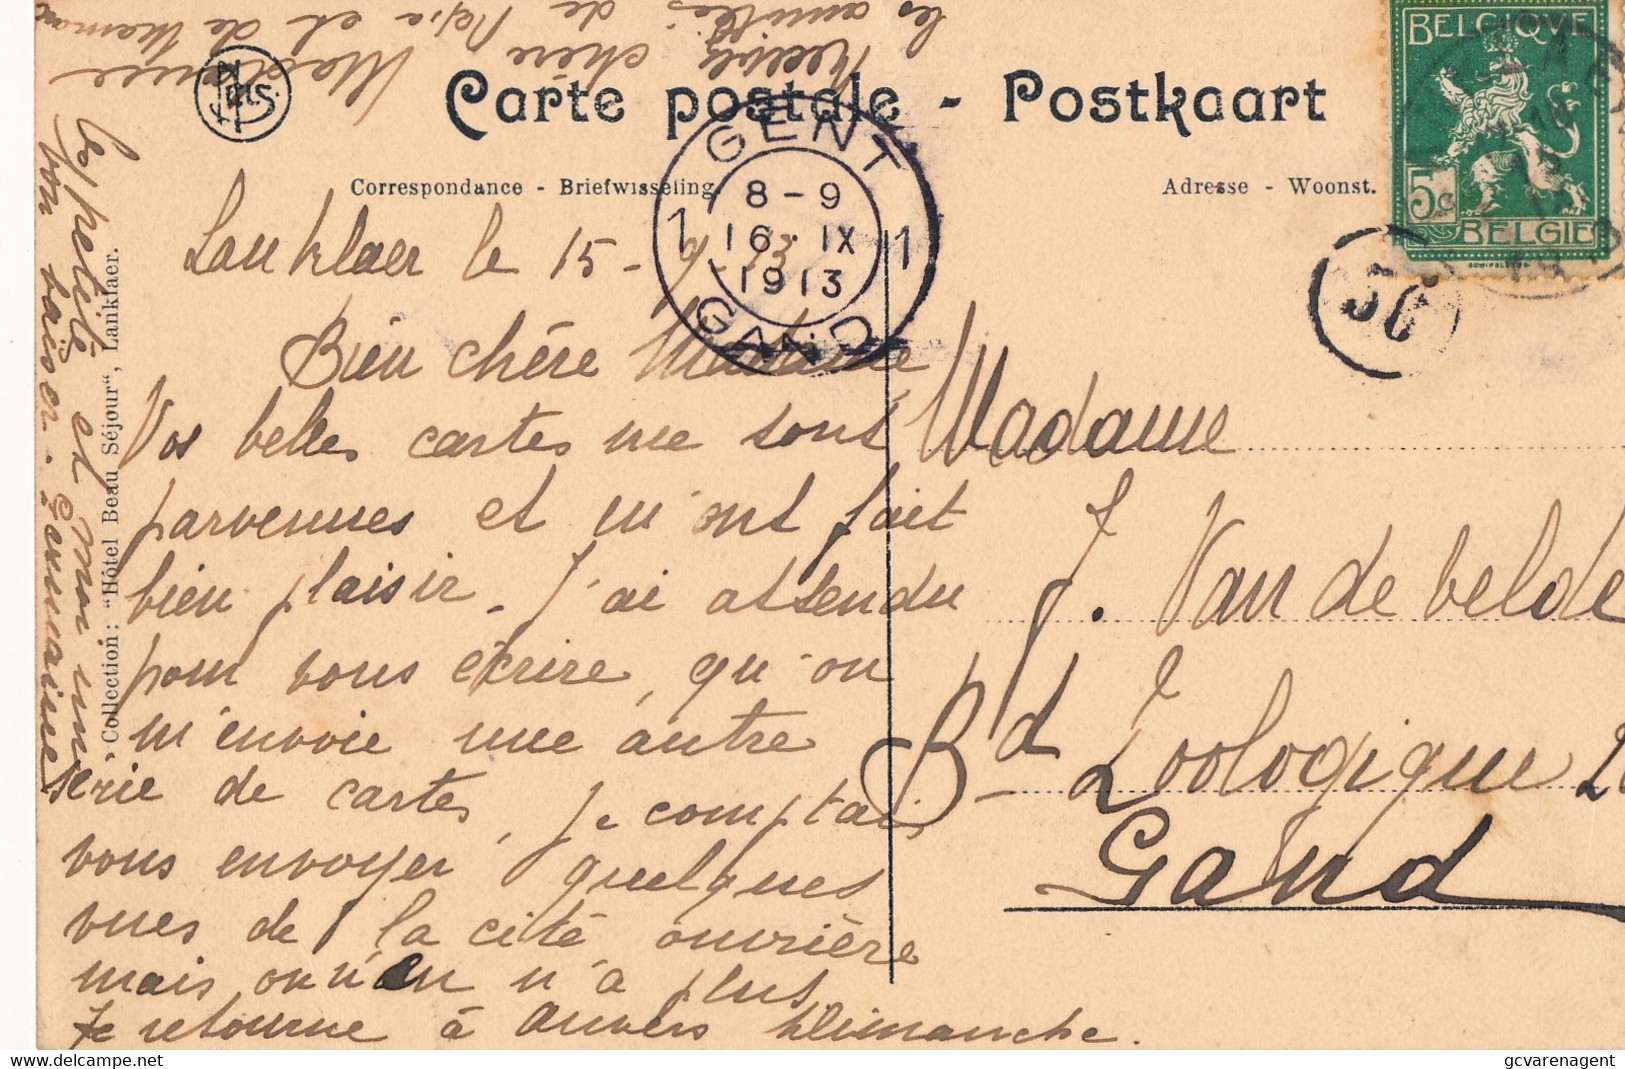 Carte postale - Postkaart
Correspondance - Briefwisseling.
Adresse - Woonst.
NELS.
BELGIQUE
5c
BELGIË
GENT
8-9
1 16·IX 1
1913
GAND
56
Collection: "Hôtel Beau Séjour", Lanklaer.
Lanklaer le 15-9-13
Bien chère Madame
Vos belles cartes me sont
parvenues et m'ont fait
bien plaisir. J'ai attendu
pour vous écrire, qu'on
m'envoie une autre
série de cartes, je comptais
vous envoyer quelques
vues de la cité ouvrière
mais on n'en n'a plus.
Je retourne à Anvers Dimanche.
Recevez chère Madame
les amitiés de Papa et de Maman
les petites et mon
bon baiser. Germaine
Madame
J. Van de Velde
Bd Zoologique
Gand
gcvarenagent